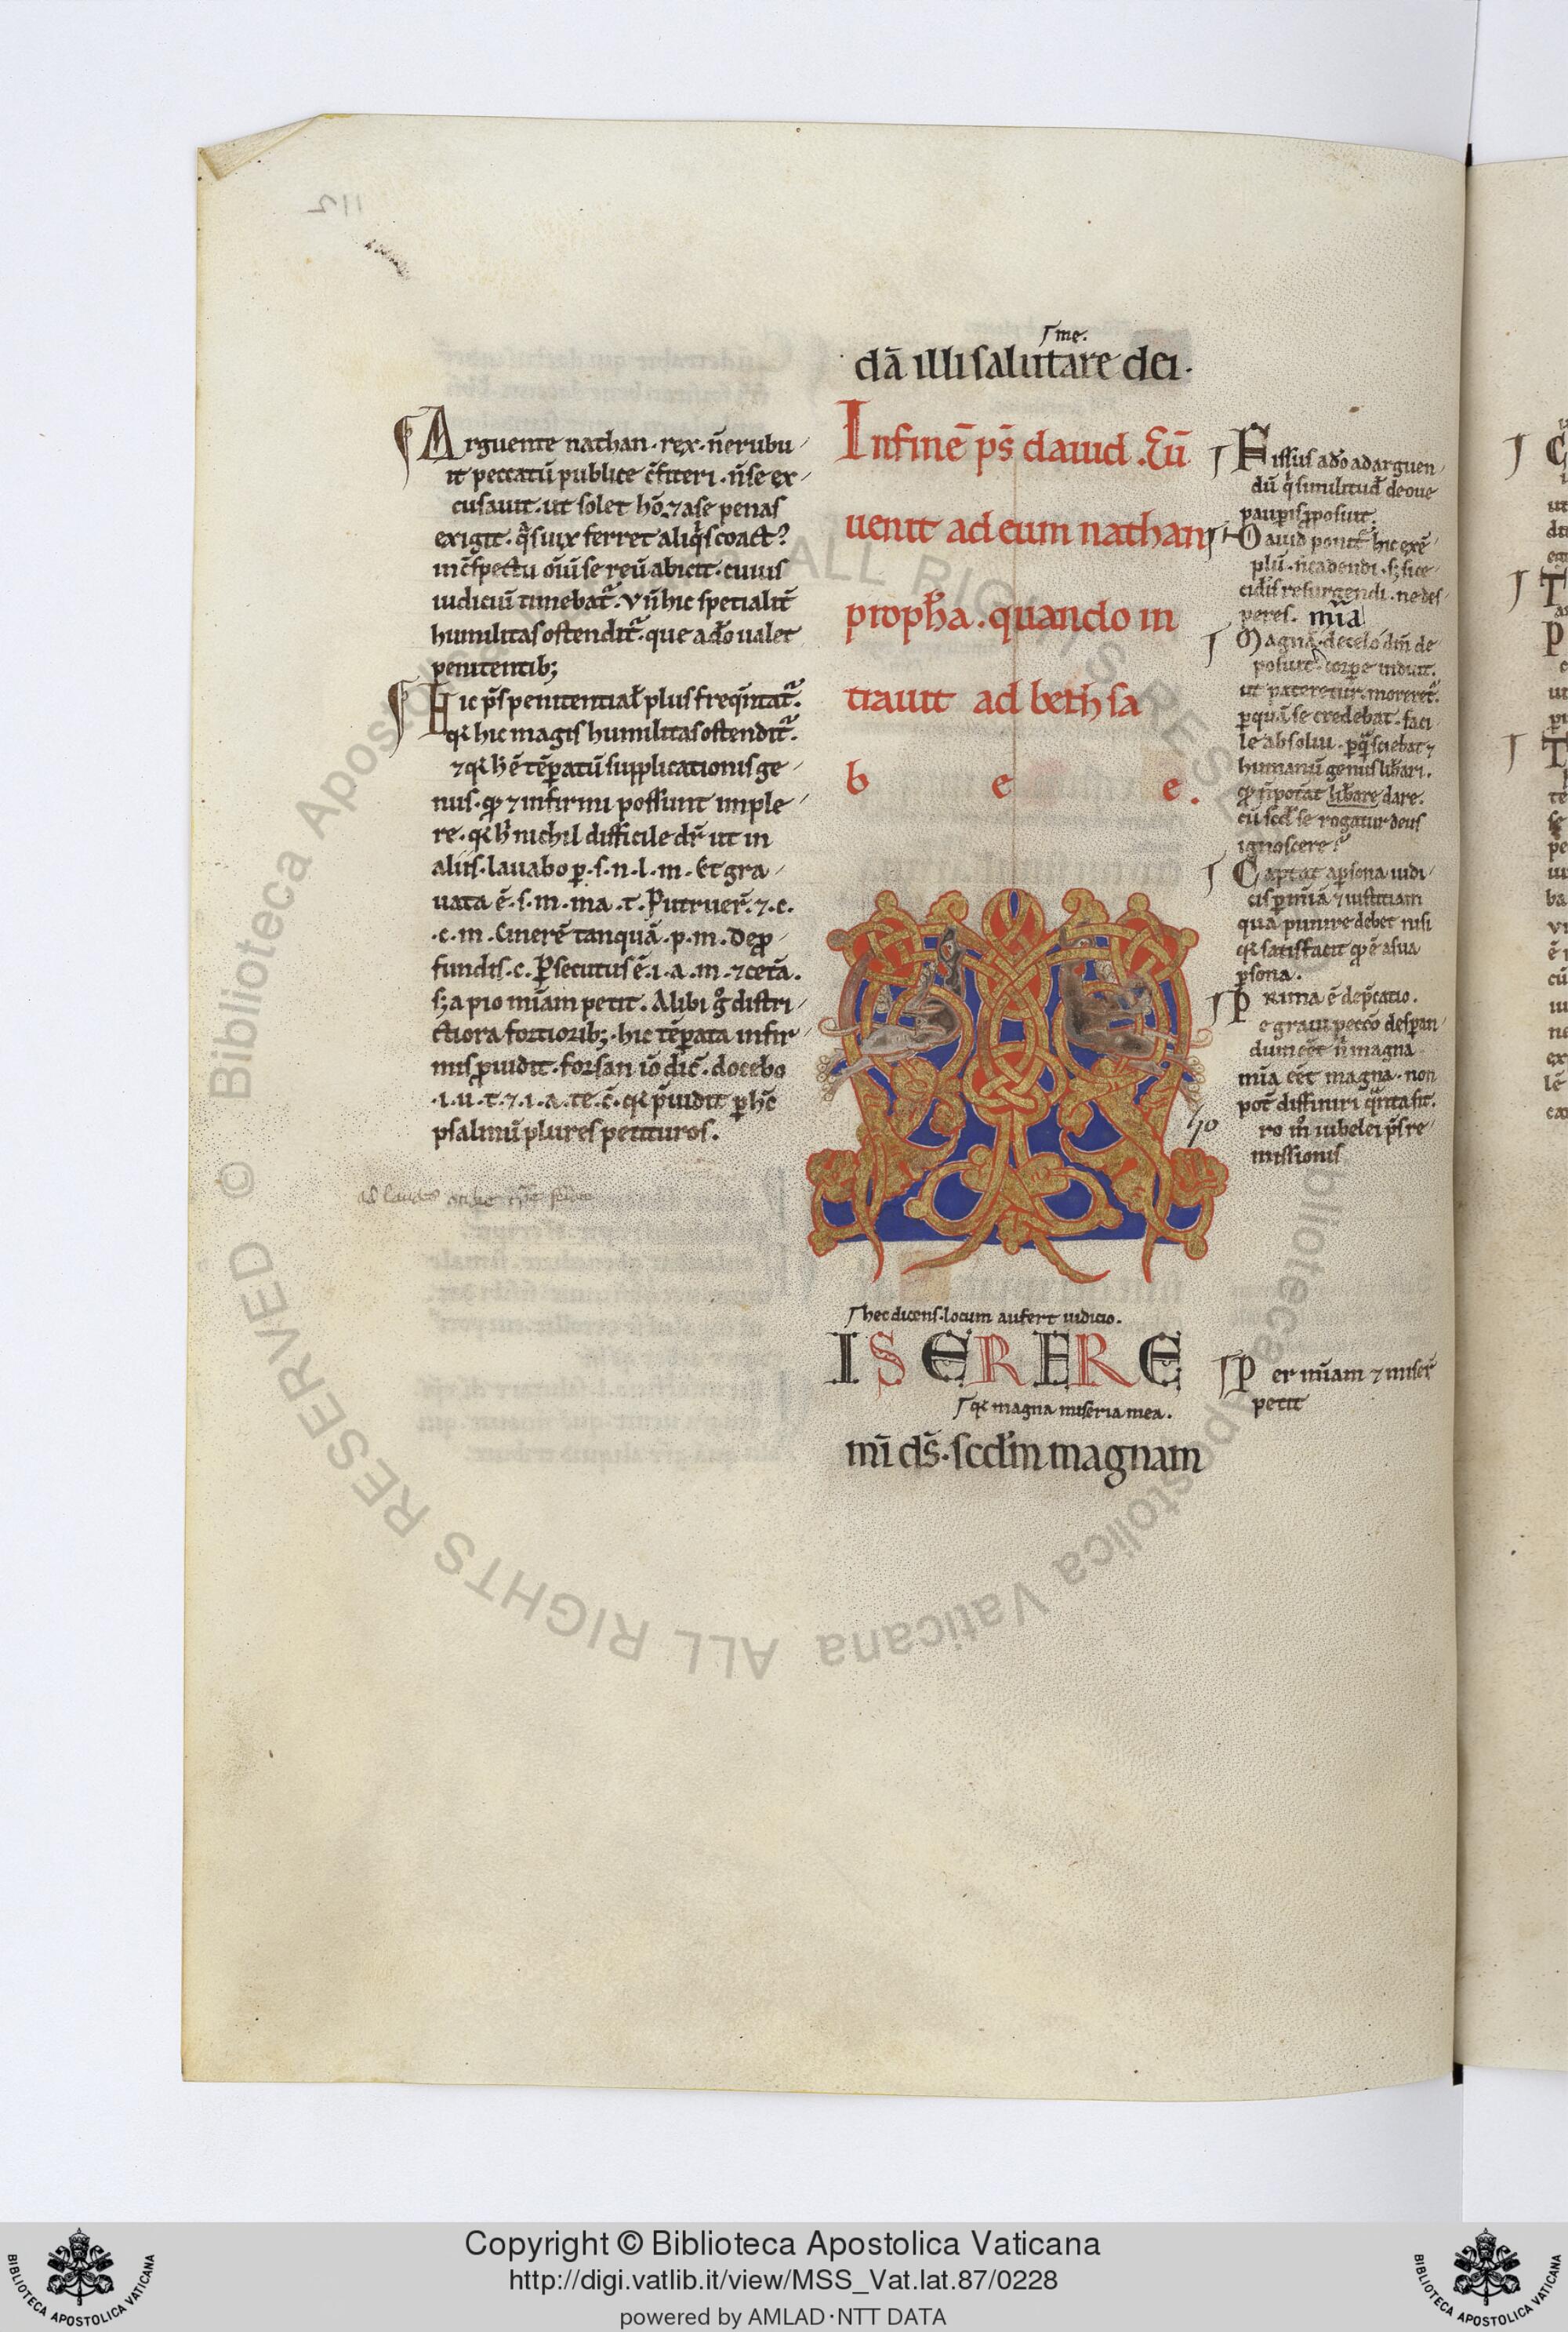 ⌈me.
dā illi salutare dei.
Infinē ps̄ dauid. Cū
uenit ad eum nathan
proph̄a. quando in
trauit ad beth sa
b e e.
⌈hec dicens. locum aufert iudicio.
ISERERE
⌈qr magna miseria mea.
mī ds̄. scdm̄ magnam
Arguente nathan. rex. n̄ erubu
it peccatū publice c̄fiteri. n̄ se ex
cusauit. ut solet hō. ⁊ a se penas
exigit. q̄s uix ferret aliq̄s coact?
in c̄spectu oīū se reū abicit. cuius
iudiciū timebat̄. Vn̄ hic specialit̄
humilitas ostendit̄. que adō ualet
penitentib;
Hic ps̄ penitential̄ plus freq̄ntat̄.
qr hic magis humilitas ostendit̄.
⁊ qr h̄ ē tēꝑatū supplicationis ge
nus. qđ ⁊ infirmi possunt imple
re. qr h̄ nichil difficile dr̄ ut in
aliis. lauabo ꝑ. s. n. l. m. Et gra
uata ē. s. m. ma. t. Putruer̄. ⁊. c.
.c. m. Cinerē tanquā. p. m. De ꝓ
fundis. c. P̄secutus ē. i. a. m. ⁊ cetā.
sȝ a pio mīam petit. Alibi gͦ distri
ctiora fortiorib;. hic tēꝑata infir
mis ꝓuidit. forsan iō dic̄. docebo
.i. u. t. ⁊. i. a. te. c̄. qr p̄uidit ꝑ hc̄
psalmū plures petituros.
Missus adō ad arguen
dū q̄ similitud̄ de oue
pauꝑis ꝓposuit.
Dauid ponit̄ hic exē
plū. n̄ cadendi. sȝ si ce
cidis resurgendi. ne des
peres. mīa
Magnā. de celo dm̄ de
posuit. corꝑe induit.
ut pateretur. moreret̄.
ꝑ quā se credebat. faci
le absolui. ꝑ q̄ sciebat ⁊
humanū genus lib̄ari.
qđ n̄ potāt lib̄are dare.
cū scd̄ se rogatur deus
ignoscere?
Captat a ꝑsona iudi
cis ꝑ mīā ⁊ iustitiam
qua punire debet nisi
qr satisfacit qđ ē a sua
ꝑsona.
Prima ē dep̄catio.
e graui peccō desꝑan
dum eēt n̄ magna
mīa eēt magna. non
pot̄ diffiniri q̄nta sit.
ro m̄ iubelei ps̄ re
missionis
Per mīam ⁊ miser̄
petit
112
Copyright © Biblioteca Apostolica Vaticana
http://digi.vatlib.it/view/MSS_Vat.lat.87/0228
powered by AMLAD·NTT DATA
BIBLIOTECA APOSTOLICA VATICANA
BIBLIOTECA APOSTOLICA VATICANA
© Biblioteca Apostolica Vaticana ALL RIGHTS RESERVED